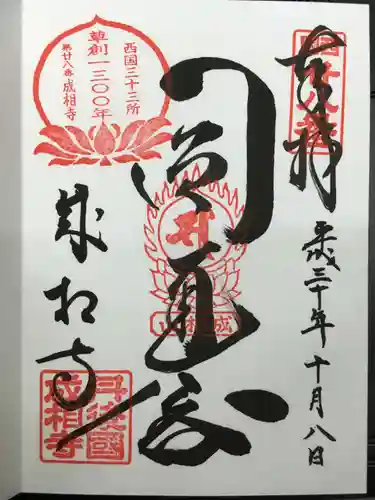 奉拝
平成三十年十月八日
圓通殿
成相寺
西国三十三所
草創一三〇〇年
第廿八番成相寺
成相山
丹後國
成相寺